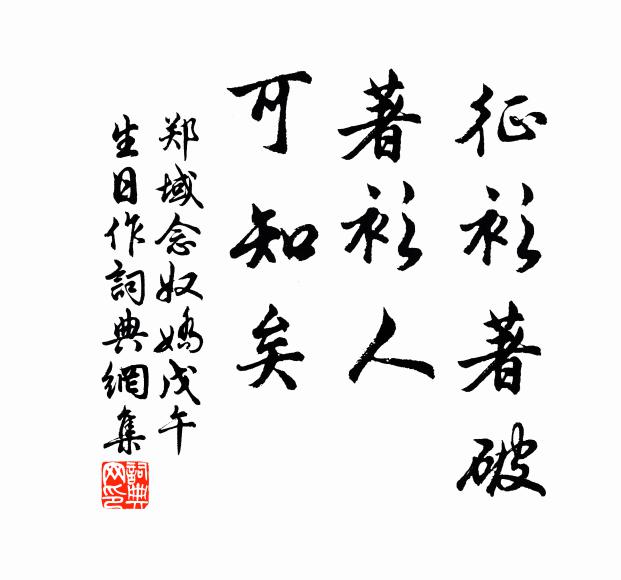 征衫著破
著衫人
可知矣
郑域念奴嬌戊午
生日作詞典網集
詞典網印